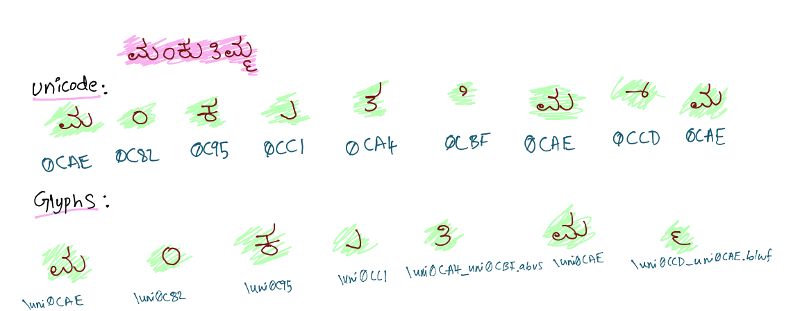 ಮಂಕುತಿಮ್ಮ
Unicode:
ಮ ಂ ಕ ು ತ ಿ ಮ ್ ಮ
0CAE 0C82 0C95 0CC1 0CA4 0CBF 0CAE 0CCD 0CAE
Glyphs:
ಮ ಂ ಕ ು ತಿ ಮ ್ಮ
\uni0CAE \uni0C82 \uni0C95 \uni0CC1 \uni0CA4_uni0CBF.abvs \uni0CAE \uni0CCD_uni0CAE.blwf